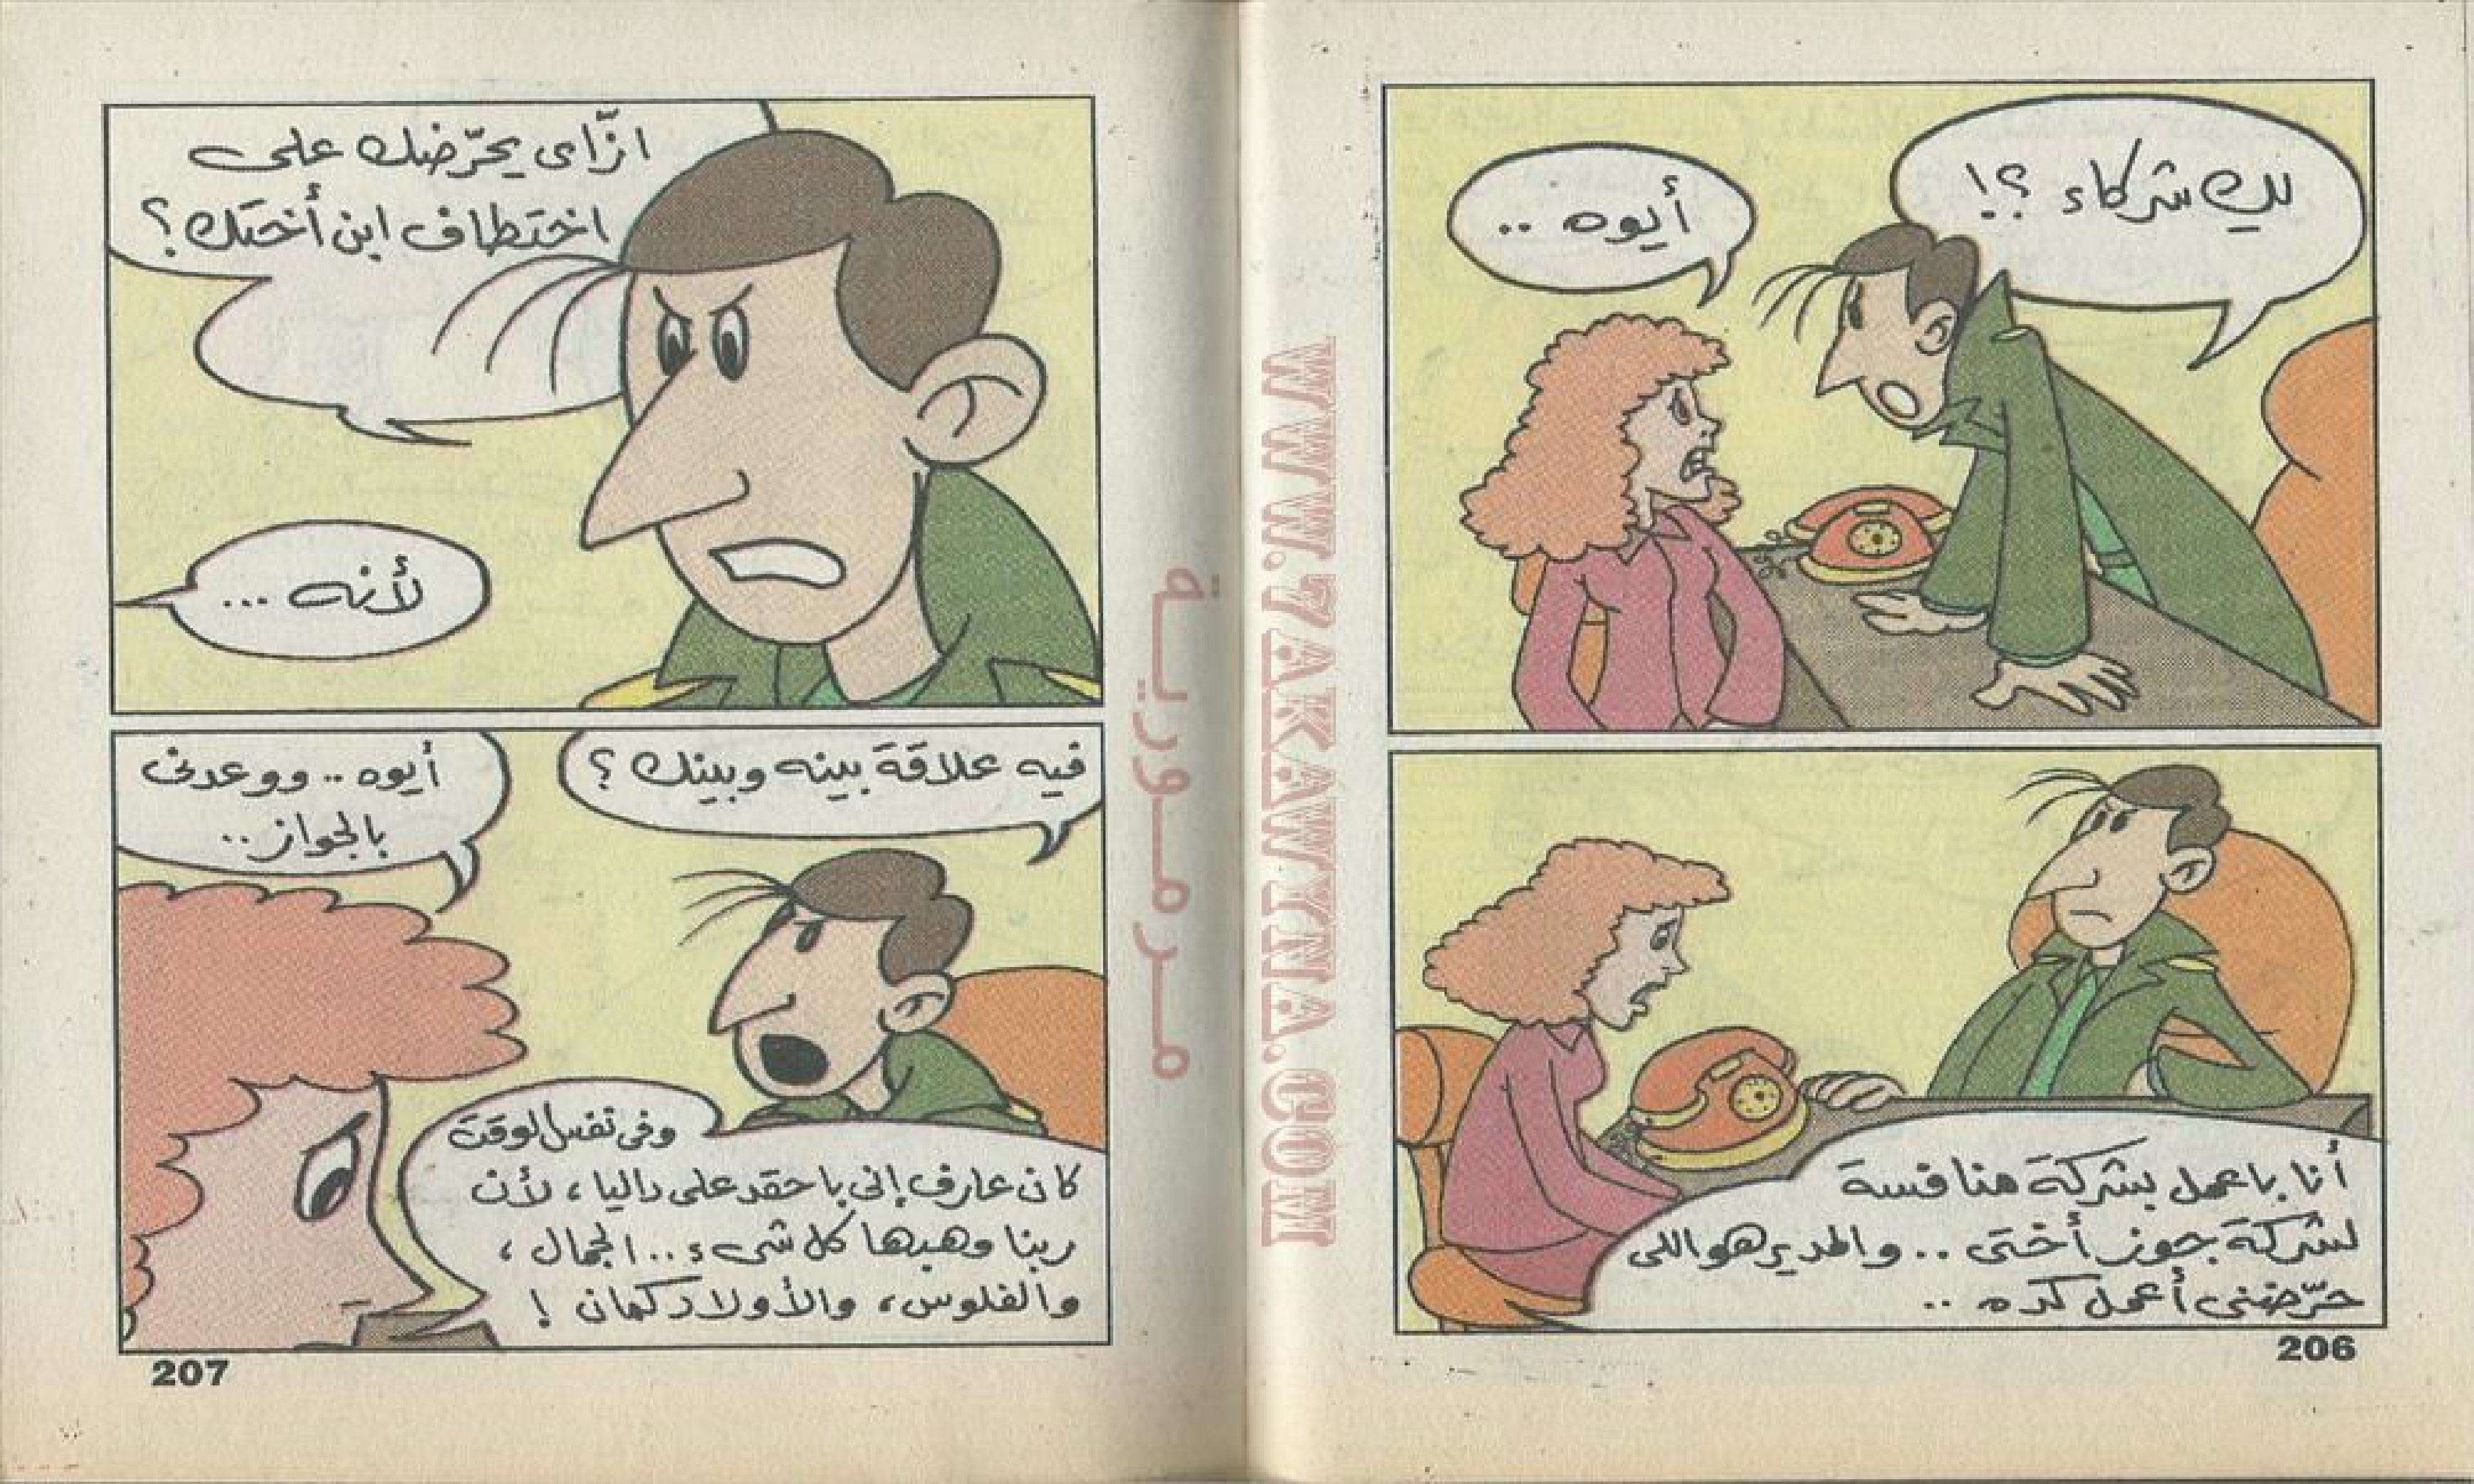 لك شركاء ؟!
أيوه ..
أنا باعمل بشركة منافسة
لشركة جوز أختى .. والمدير هو اللى
حرّضنى أعمل كده ..
206
ازّاى يحرّضك على
اختطاف ابن أختك ؟
لأنه ...
فيه علاقة بينه وبينك ؟
أيوه .. ووعدنى
بالجواز ..
وفى نفس الوقت
كان عارف إنى باحقد على داليا ، لأن
ربنا وهبها كل شىء .. الجمال ،
والفلوس ، والأولاد كمان !
207
WWW.7AKAWYNA.COM
مرمورية